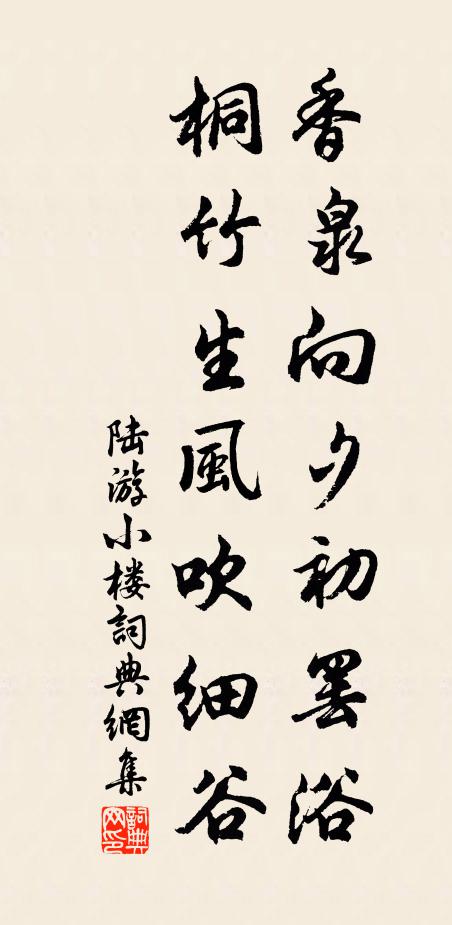 香泉向夕初罢浴
桐竹生風吹细谷
陆游小楼詞典網集
詞典
网印